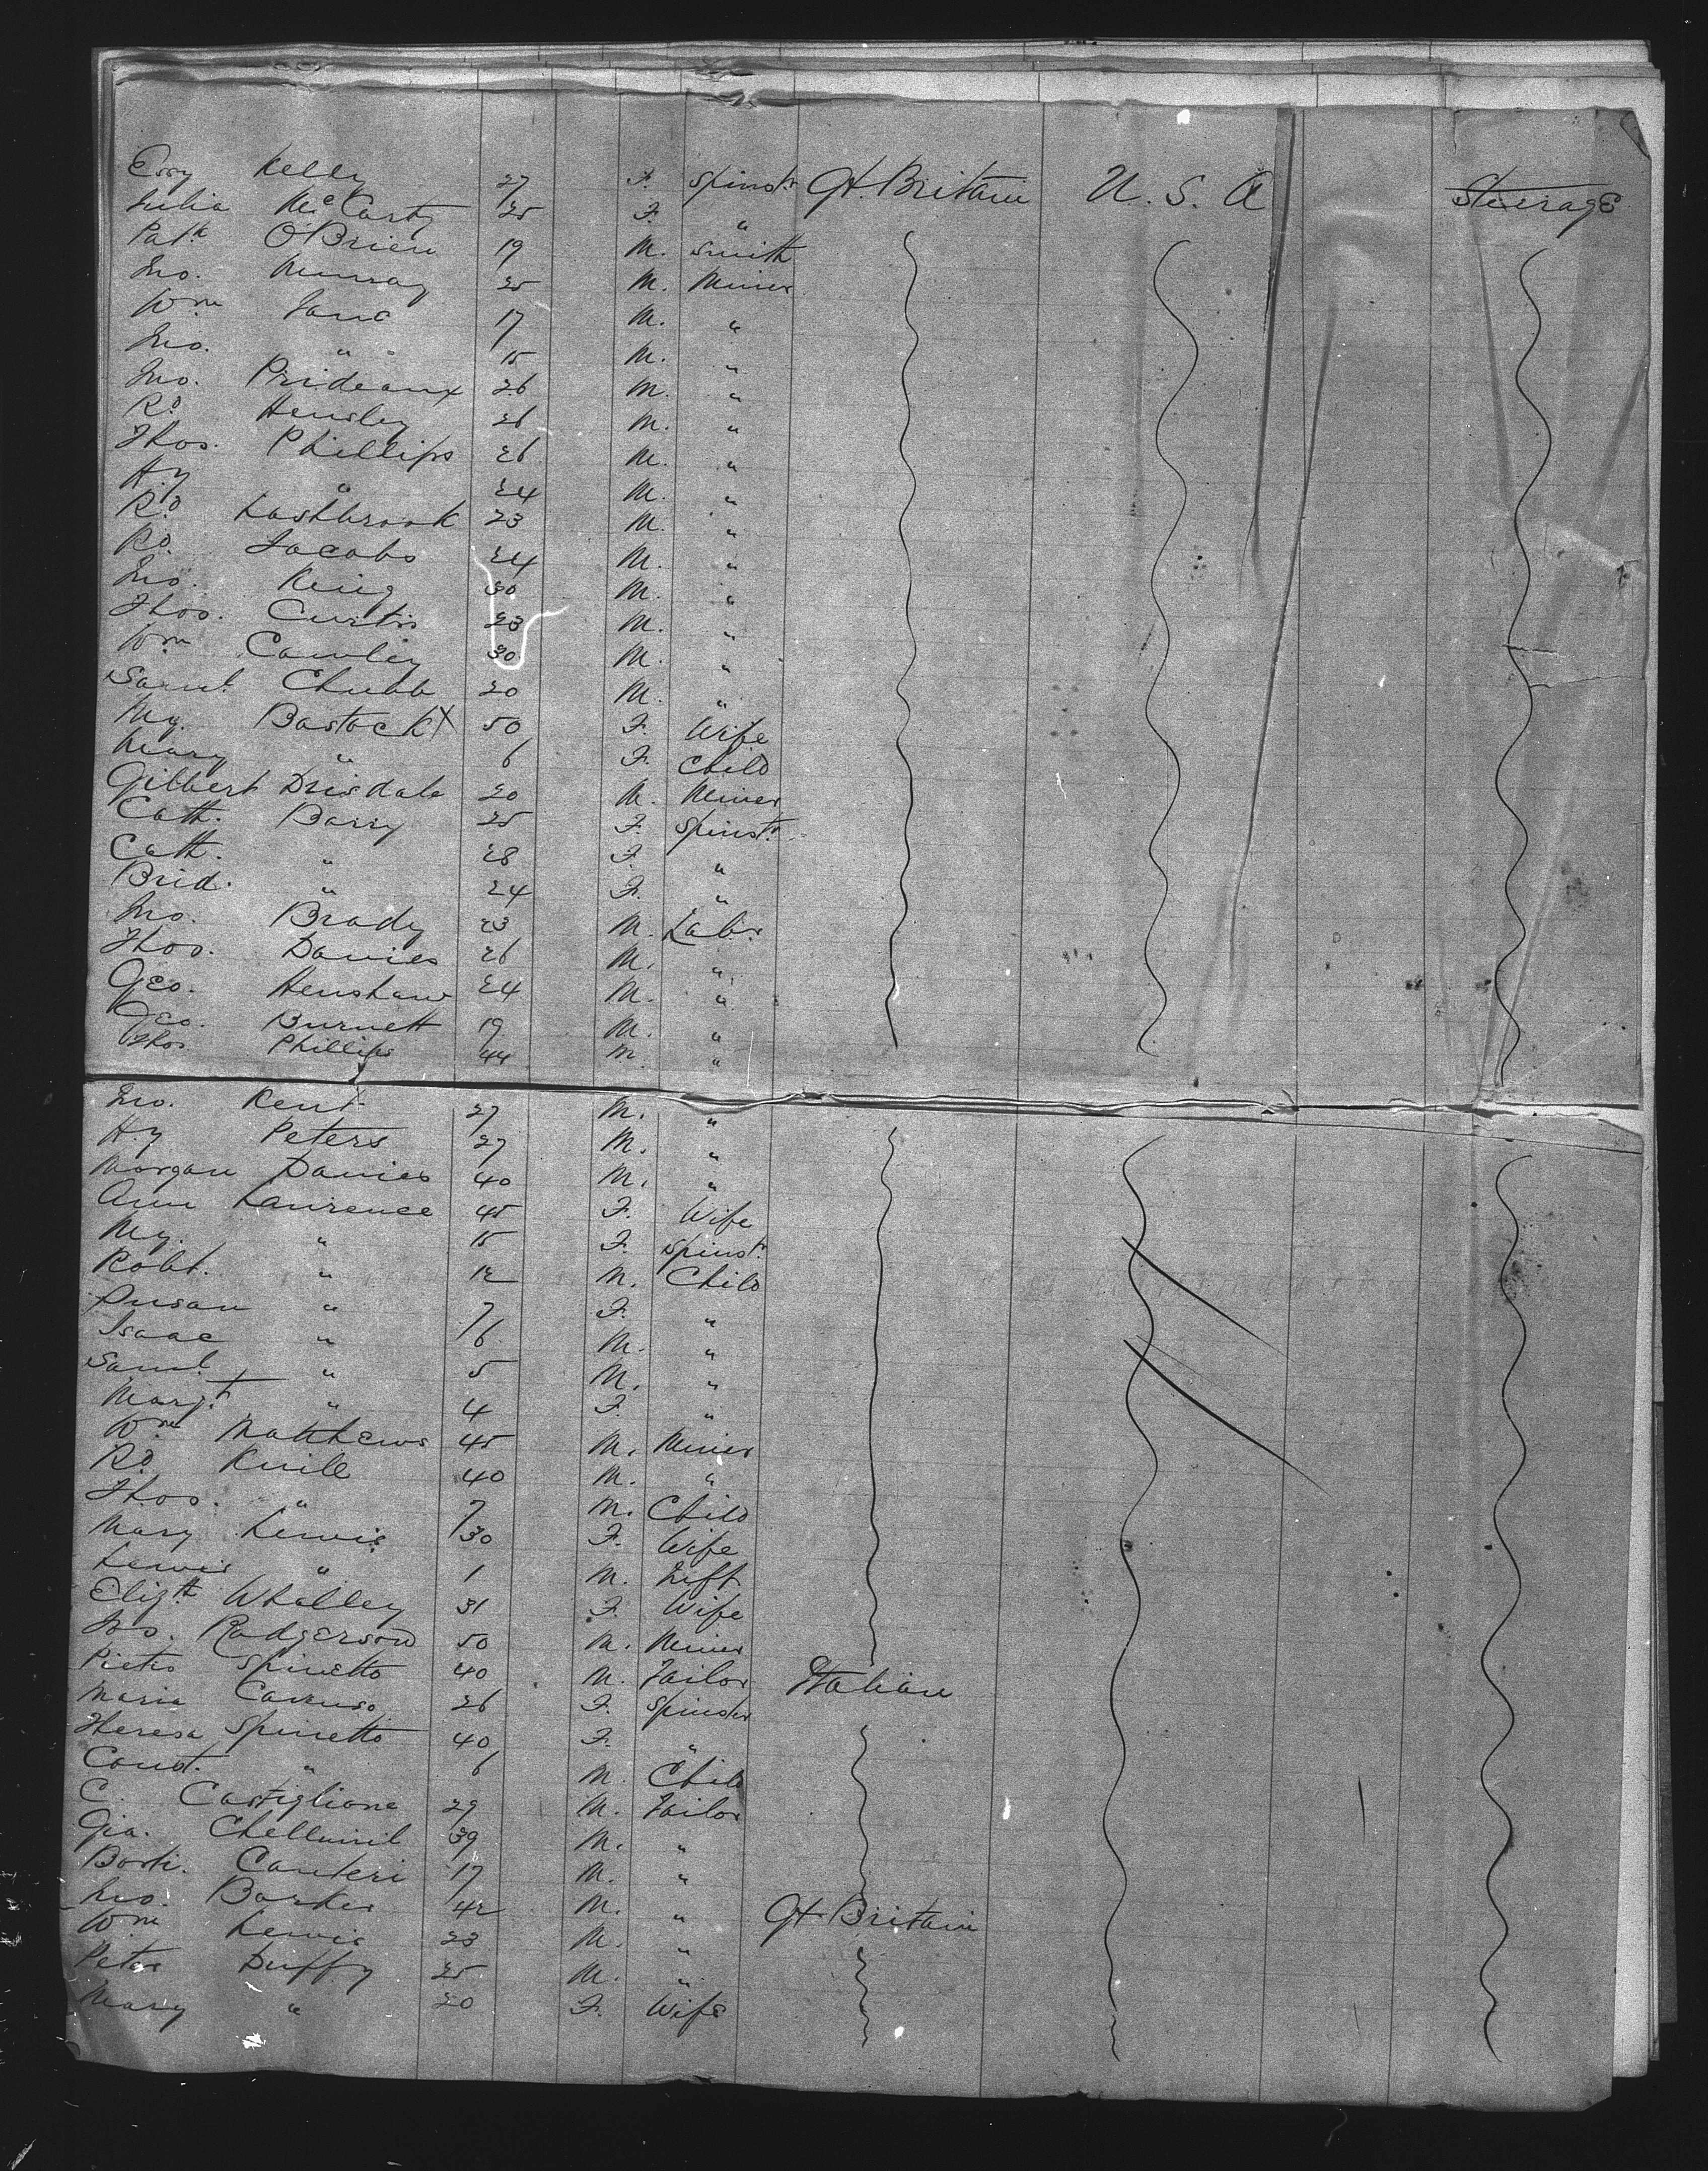 Essy Kelly 27 F. Spinstr Gt. Britain U. S. A Steerage
Julia McCarty 25 F. "
Patk O'Brien 19 M. Smith
Jno. Murray 25 M. Miner
Wm Jane 17 M. "
Jno. " 15 M. "
Jno. Prideaux 26 M. "
Rd Hensley 26 M. "
Thos. Phillips 26 M. "
Hy " 24 M. "
Rd Lashbrook 23 M. "
Rd. Jacobs 24 M. "
Jno. King 30 M. "
Thos. Curtis 23 M. "
Wm Cawley 30 M. "
Saml. Chubb 20 M. "
My. Bastock X 50 F. Wife
Mary " 6 F. Child
Gilbert Drisdale 20 M. Miner
Cath. Barry 25 F. Spinstr
Cath. " 28 F. "
Brid. " 24 F. "
Jno. Brady 23 M. Labr
Thos. Davies 26 M. "
Geo. Henshaw 24 M. "
Geo. Burnett 19 M. "
Thos. Phillips 44 M. "
Jno. Kent 27 M. "
Hy Peters 27 M. "
Morgan Davies 40 M. "
Ann Lawrence 45 F. Wife
My. " 15 F. Spinstr
Robt. " 12 M. Child
Susan " 7 F. "
Isaac " 6 M. "
Saml. " 5 M. "
Margt " 4 F. "
Wm Matthews 45 M. Miner
Rd. 40 M. "
Thos. " 7 M. Child
Mary Lewis 30 F. Wife
Lewis " 1 M. Inft
Elizth Whalley 31 F. Wife
Rodgerson 50 M. Miner
Pietro Spinetto 40 M. Tailor Italian
Maria Caruso 26 F. Spinster
Theresa Spinetto 40 F. "
Const. " 6 M. Child
C. Castigliane 29 M. Tailor
Gia. 39 M. "
Canteri 17 M. "
Jno. Barker 42 M. " Gt Britain
Wm Lewis 23 M. "
Peter Duffy 25 M. "
Mary " 20 F. Wife